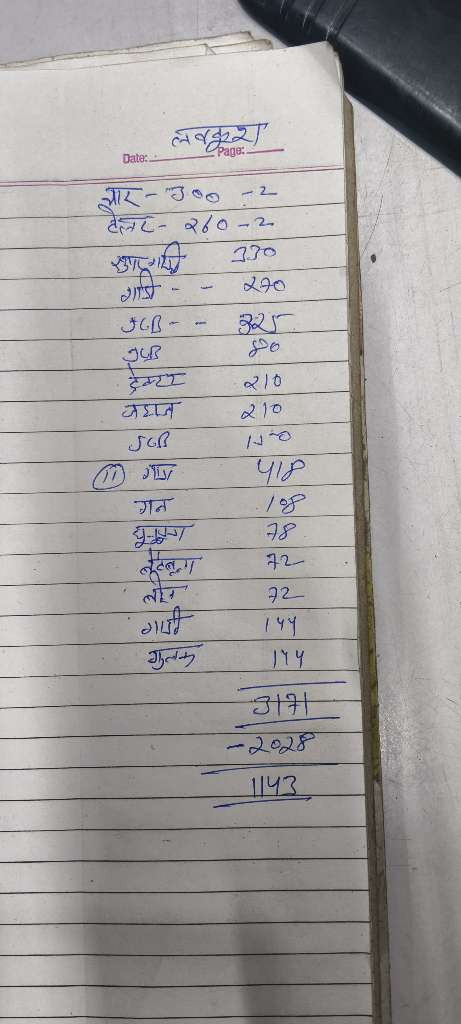 लवकुश
Date: Page:
300 - 2
टेलर - 260 - 2
330
गाडी - - 270
JCB - - 325
JCB 80
ट्रेक्टर 210
जहाज 210
JCB 150
11 418
गन 108
78
72
72
गाडी 144
144
3171
- 2028
1143